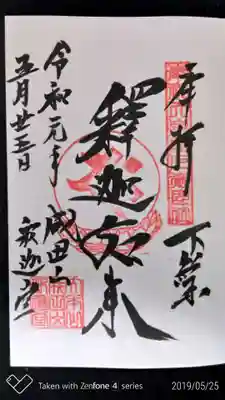 奉拝
下総
釋迦如来
成田山
釈迦堂
令和元年
五月廿五日
Taken with Zenfone 4 series
2019/05/25